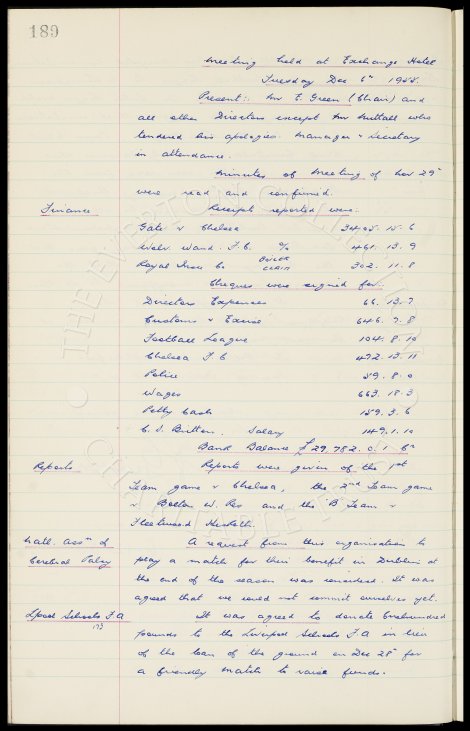 189
Meeting held at Exchange Hotel
Tuesday Dec 6th 1955.
Present:- Mr E. Green (Chair) and
all other Directors except Mr Nuttall who
tendered his apologies. Manager & Secretary
in attendance.
Minutes of Meeting of Nov 29th
were read and confirmed.
Finance Receipts reported were:
Gate v Chelsea 3408. 15. 6
Wolv. Wand. F.C. % 461. 13. 9
Royal Insce Co BRICK CLAIM 302. 11. 8
Cheques were signed for:
Directors Expenses 66. 13. 7
Customs & Excise 646. 7. 8
Football League 104. 8. 10
Chelsea F C 472. 13. 11
Police 59. 8. 0
Wages 663. 18. 3
Petty Cash 159. 3. 6
C. S. Britton Salary 149. 1. 10
Bank Balance £29,782. 0. 1.
Reports Reports were given of the 1st
Team game v Chelsea, the 2nd Team game
v Bolton W. Res and the 'B' Team v
Fleetwood Hesketh.
Natl. Assn of A request from this organisation to
Cerebral Palsy play a match for their benefit in Dublin at
the end of the season was considered. It was
agreed that we could not commit ourselves yet.
Lpool Schools F A It was agreed to donate hundred
pounds to the Liverpool Schools F A in lieu
of the loan of the ground on Dec 28th for
a friendly match to raise funds.
THE EVERTON COLLECTION
CHARITABLE TRUST